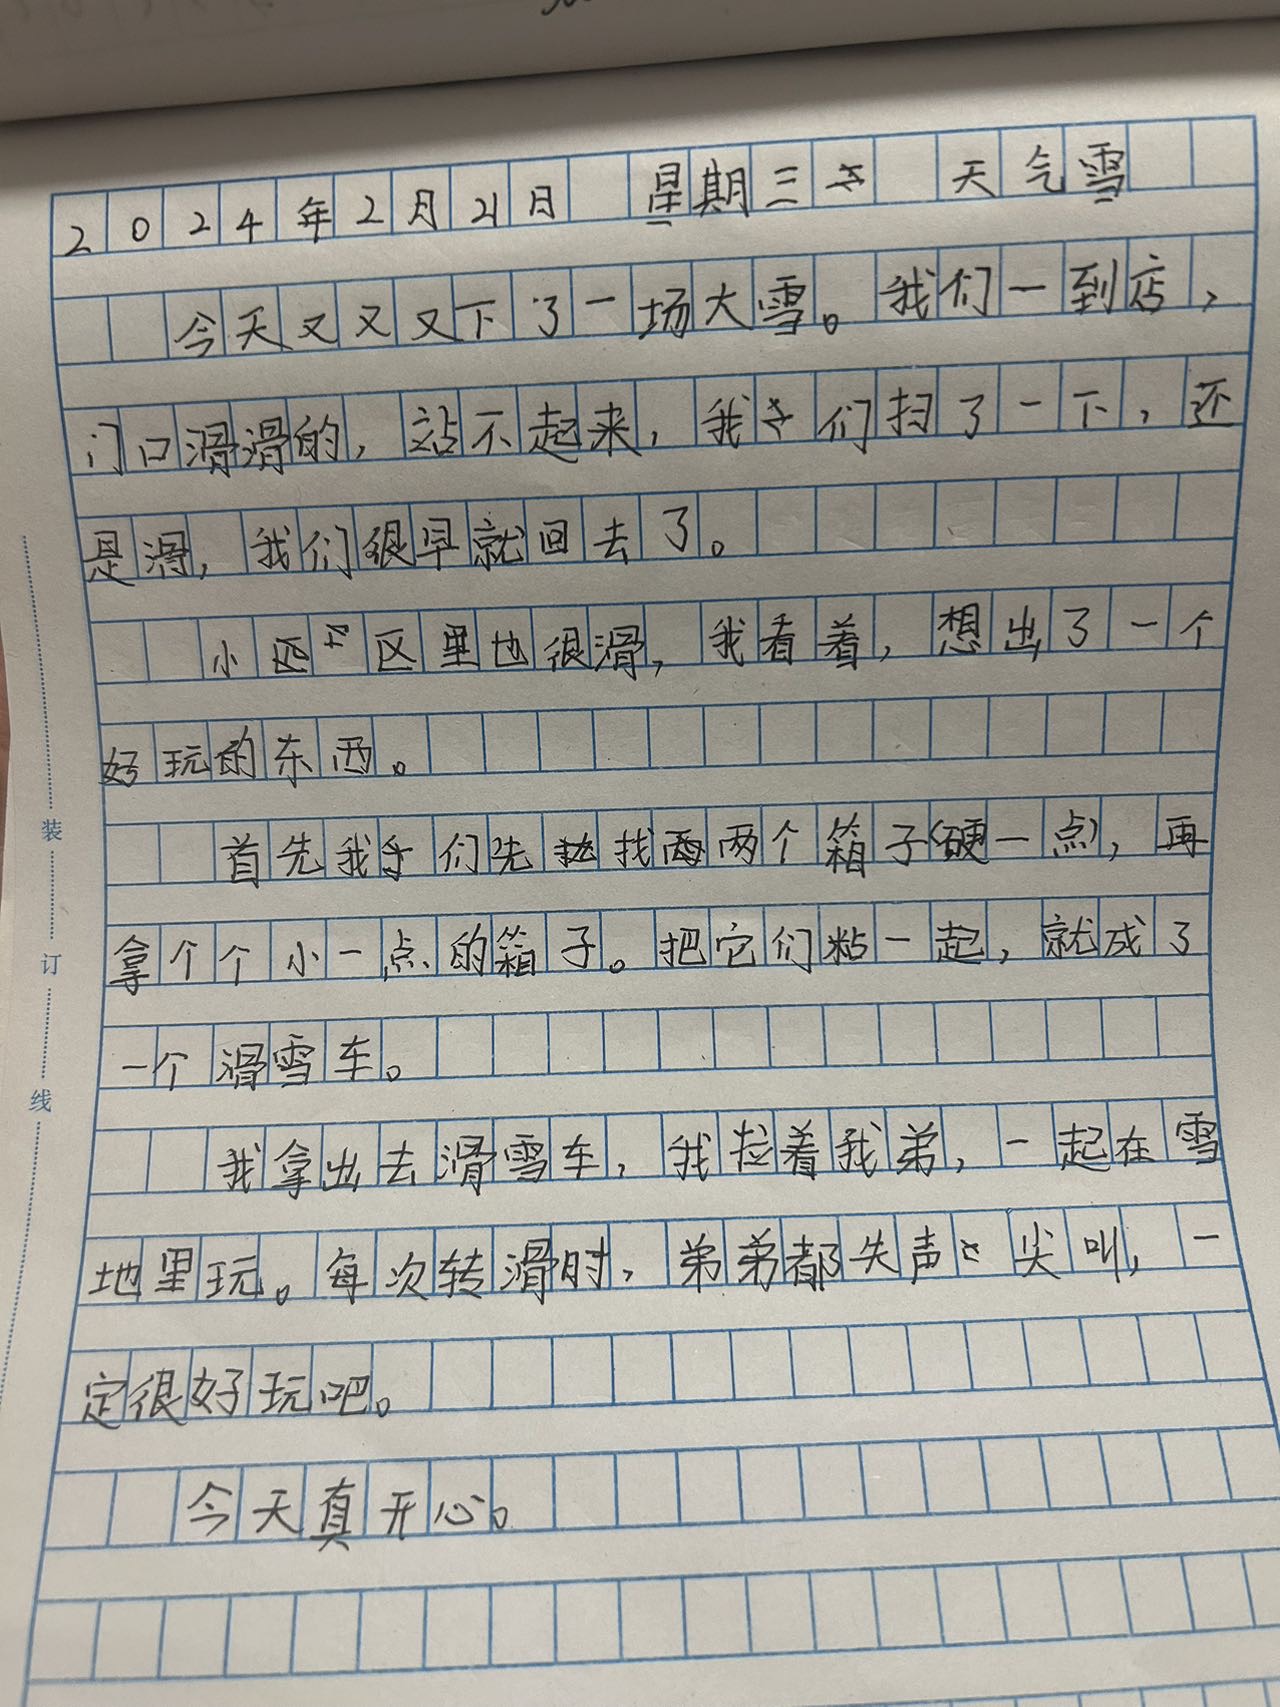 2024年2月21日 星期三 天气雪
今天又又又下了一场大雪。我们一到店，
门口滑滑的，站不起来，我们扫了一下，还
是滑，我们很早就回去了。
小区里也很滑，我看着，想出了一个
好玩的东西。
首先我们先找两个箱子(硬一点)，再
拿个个小一点的箱子。把它们粘一起，就成了
一个滑雪车。
我拿出去滑雪车，我拉着我弟，一起在雪
地里玩。每次转滑时，弟弟都失声尖叫，一
定很好玩吧。
今天真开心。
装
订
线